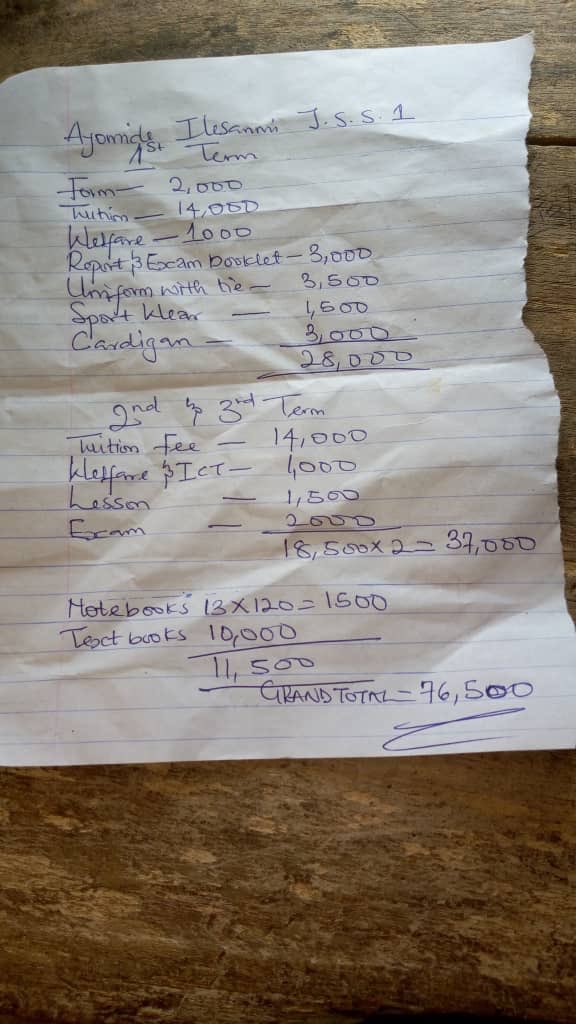 Ayomide Ilesanmi J.S.S.1
1st Term
Form — 2,000
Tuition — 14,000
Welfare — 1000
Report & Exam booklet — 3,000
Uniform with tie — 3,500
Sport Wear — 1,500
Cardigan — 3,000
28,000
2nd & 3rd Term
Tuition fee — 14,000
Welfare & ICT — 1,000
Lesson — 1,500
Exam — 2000
18,500 x 2 = 37,000
Notebooks 13 x 120 = 1500
Text books 10,000
11,500
GRAND TOTAL = 76,500